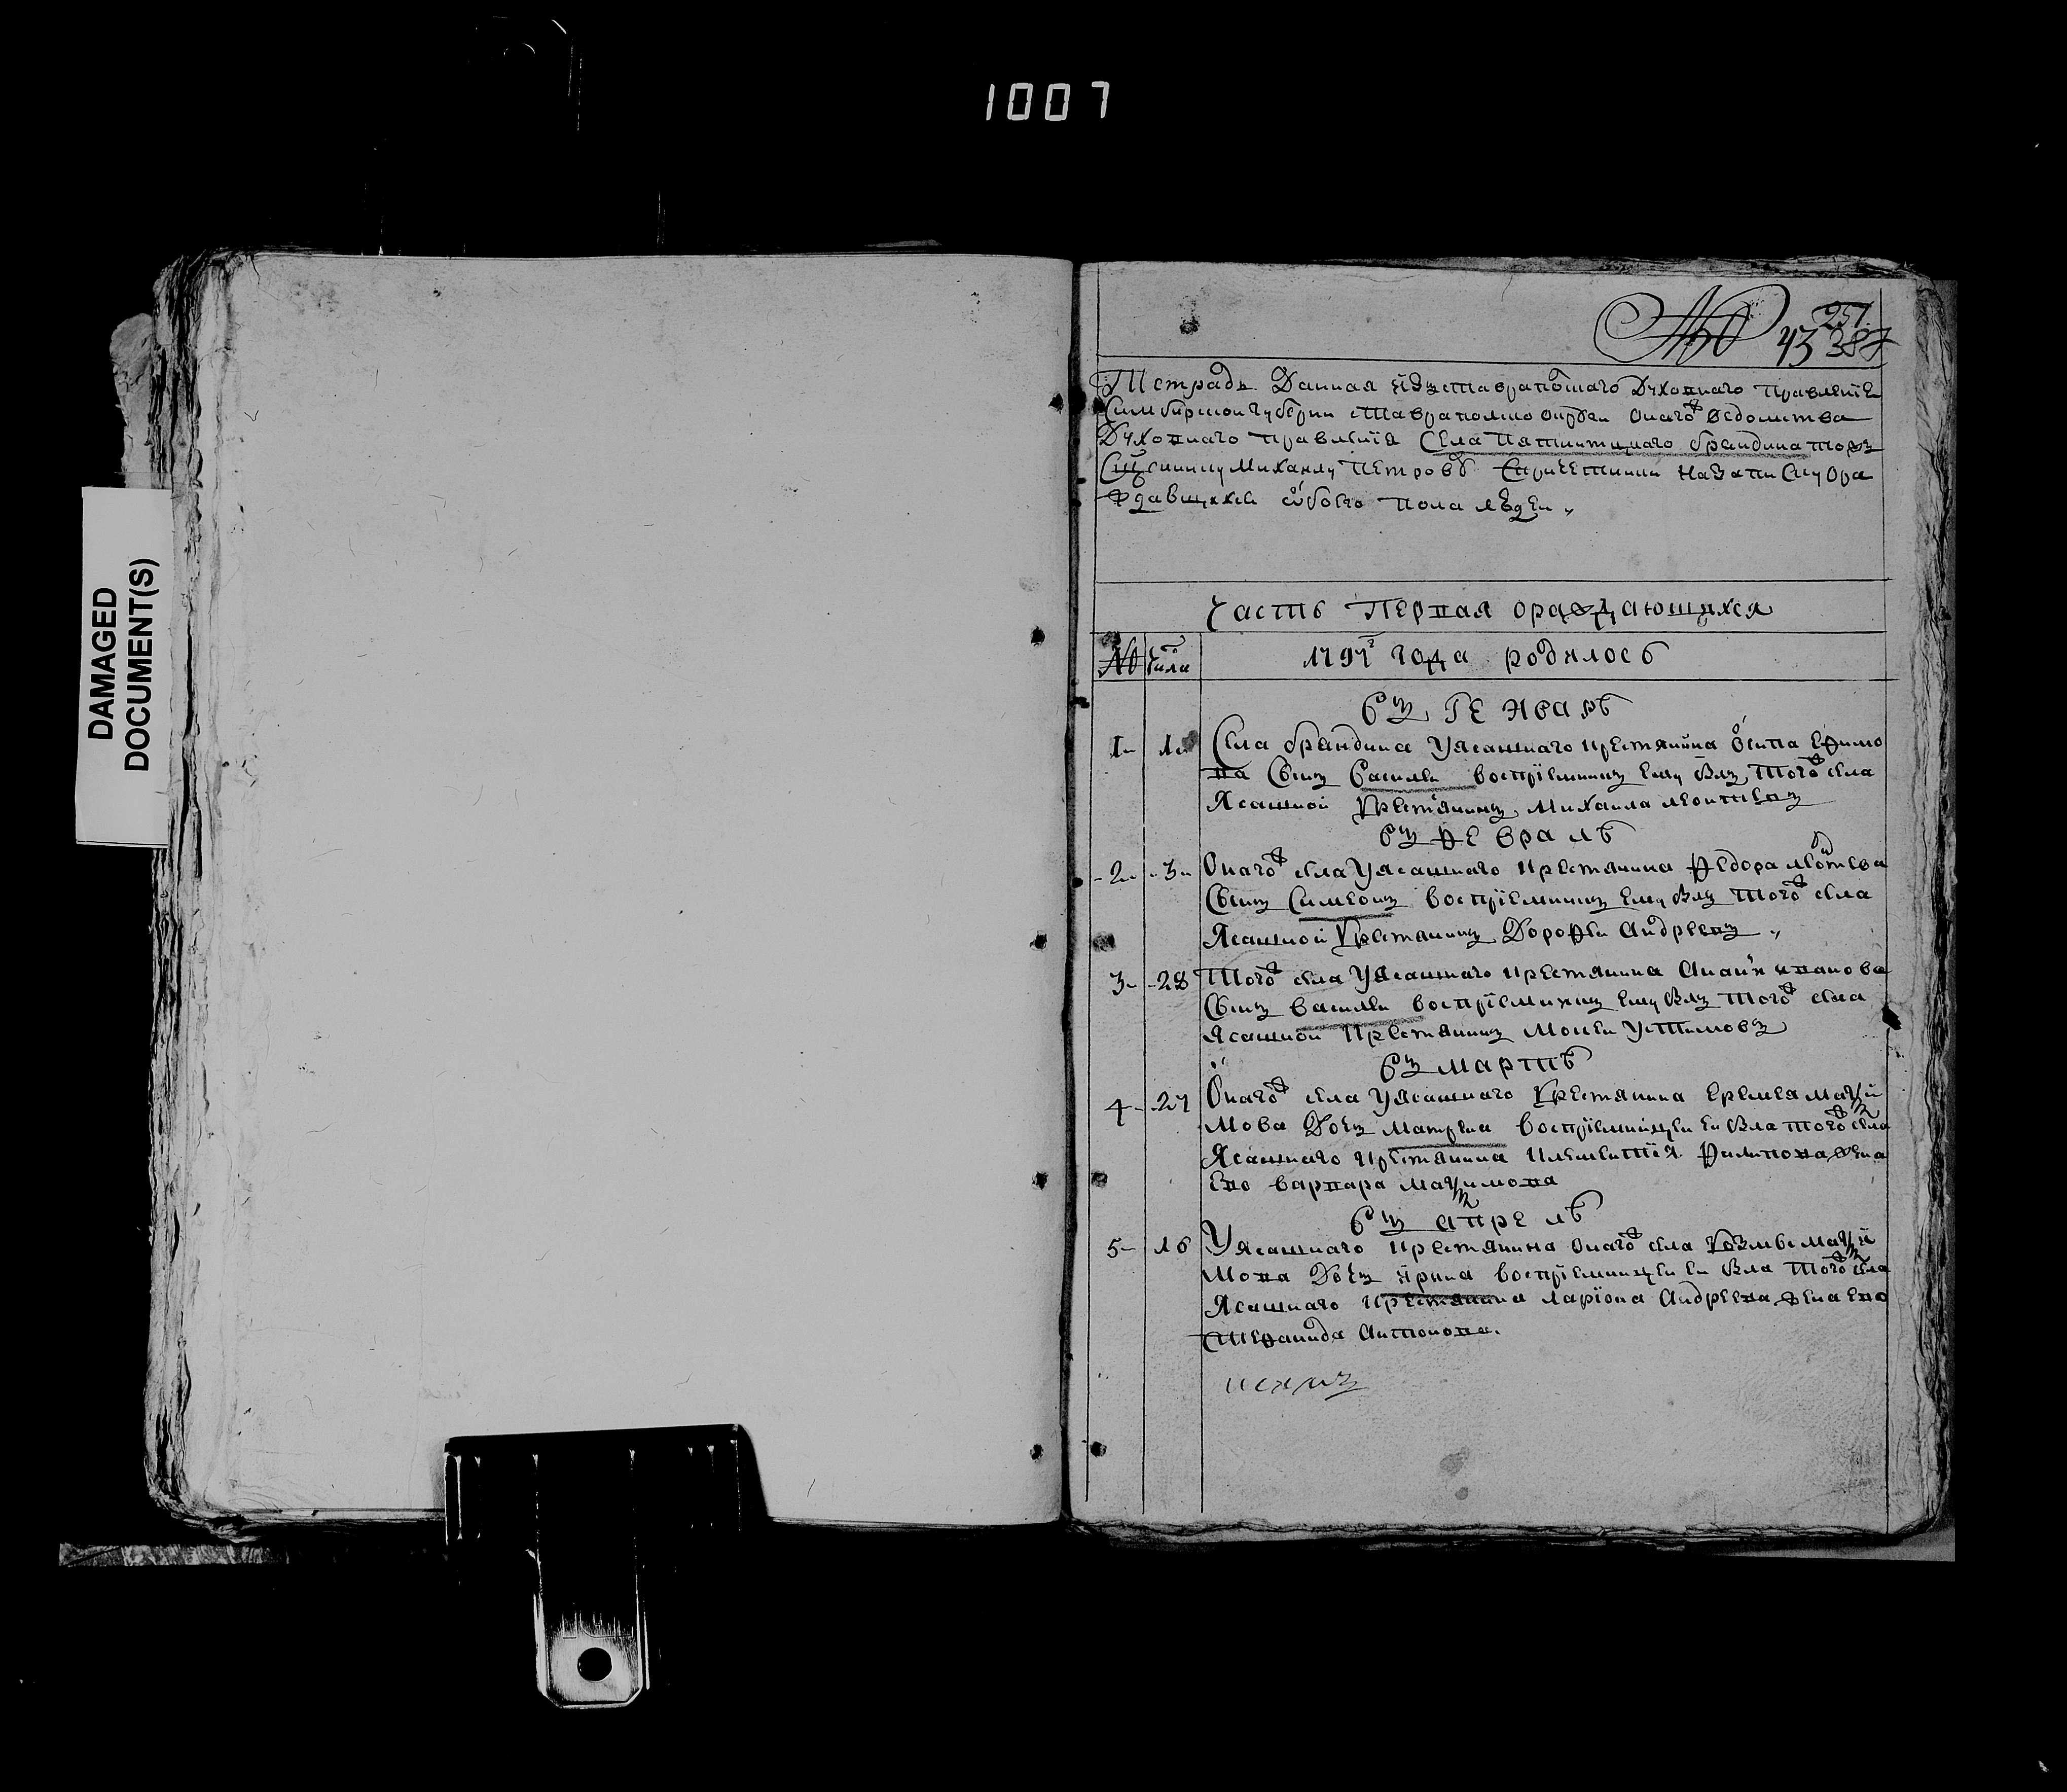 1007
DAMAGED
DOCUMENT(S)
№ 43 257
387
Тетрадь Данная изъставрапольшаго Духовнаго Правленiе
Симбирской губерни ставрапольско округи онагожъ ведомства
Духовнаго правленiя Села Пятнитцкаго брандина тожъ
Священнику Михаилу Петрову Спричетники назаписку ора
ждавшихся обоего пола людеи
Часть Первая ораждающихся
№ Числа 1797г года родилось
въ Генварѣ
1 1 Села брандина Уясашнаго крестянина осипа ефимо
ва Сынъ Василеи воспрiемникъ ему былъ тогожъ села
Ясашной крестянинъ Михаила леонтиевъ
въ февралѣ
2 3 Онагожъ села Уясашнаго крестянина федора леонтева
Сынъ Симеонъ воспрiемникъ ему былъ тогожъ села
Ясашной крестянинъ Дорофеи Андреевъ
3 28 Тогожъ села Уясашнаго крестянина иванова
Сынъ василеи воспрiемникъ ему былъ тогожъ села
Ясашной крестянинъ Моисеи Устимовъ
въ мартѣ
4 27 Онагожъ села Уясашнаго крестянина еремея макси
мова Дочь матрена воспрiемницеи еи была тогожъ села
Ясашнаго крестянина Клементiя филипова жена
ево варвара максимова
въ апрелѣ
5 16 Уясашнаго крестянина онагожъ села козмы макси
мова Дочь ирина воспрiемницеи еи была тогожъ села
Ясашнаго крестянина ларiона Андреева жена ево
Степанида Антонова.